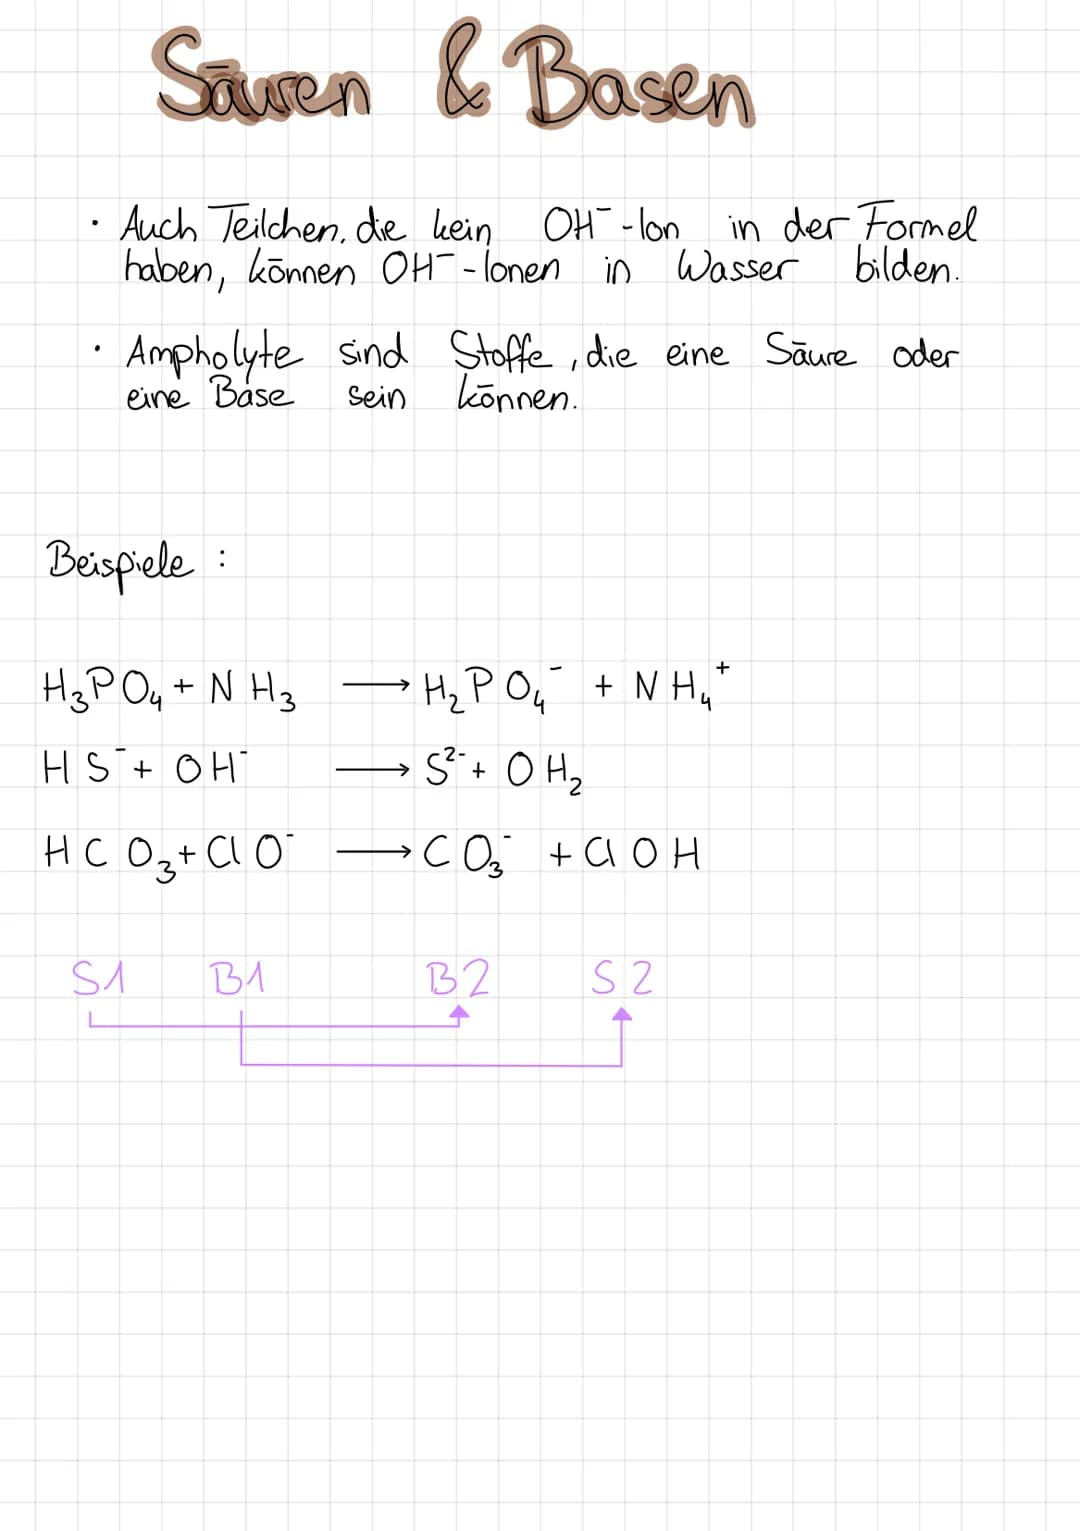 Säuren & Basen
· Auch Teilchen, die kein OH⁻-Ion in der Formel
haben, können OH⁻-Ionen in Wasser bilden.
· Ampholyte sind Stoffe, die eine Säure oder
eine Base sein können.
Beispiele :
H₃PO₄ + NH₃ ⟶ H₂PO₄⁻ + NH₄⁺
HS⁻ + OH⁻ ⟶ S²⁻ + OH₂
HCO₃ + ClO⁻ ⟶ CO₃⁻ + ClOH
S1 B1 B2 S2